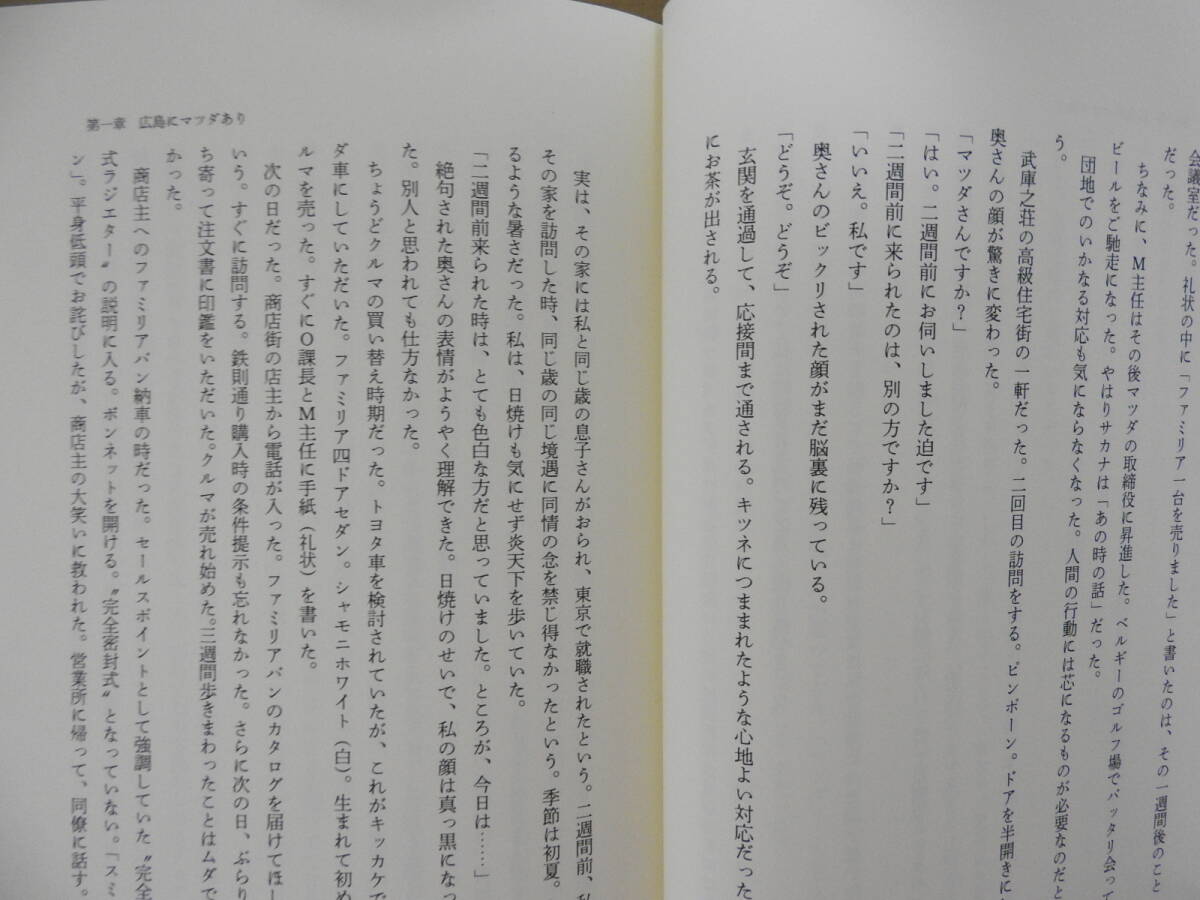 会議室だった。礼状の中に「ファミリア一台を売りました」と書いたのは、その一週間後のこと
だった。
ちなみに、M主任はその後マツダの取締役に昇進した。ベルギーのゴルフ場でバッタリ会って
ビールをご馳走になった。やはりサカナは「あの時の話」だった。
団地でのいかなる対応も気にならなくなった。人間の行動には芯になるものが必要なのだと
う。
武庫之荘の高級住宅街の一軒だった。二回目の訪問をする。ピンポーン。ドアを半開きに
奥さんの顔が驚きに変わった。
「マツダさんですか？」
「はい。二週間前にお伺いしました迫です」
「二週間前に来られたのは、別の方ですか？」
「いいえ。私です」
奥さんのビックリされた顔がまだ脳裏に残っている。
「どうぞ。どうぞ」
玄関を通過して、応接間まで通される。キツネにつままれたような心地よい対応だった
にお茶が出される。
実は、その家には私と同じ歳の息子さんがおられ、東京で就職されたという。二週間前、私
その家を訪問した時、同じ歳の同じ境遇に同情の念を禁じ得なかったという。季節は初夏。
るような暑さだった。私は、日焼けも気にせず炎天下を歩いていた。
「二週間前来られた時は、とても色白な方だと思っていました。ところが、今日は……」
絶句された奥さんの表情がようやく理解できた。日焼けのせいで、私の顔は真っ黒になっ
た。別人と思われても仕方なかった。
ちょうどクルマの買い替え時期だった。トヨタ車を検討されていたが、これがキッカケで
ダ車にしていただいた。ファミリア四ドアセダン。シャモニホワイト（白）。生まれて初め
ルマを売った。すぐにO課長とM主任に手紙（礼状）を書いた。
次の日だった。商店街の店主から電話が入った。ファミリアバンのカタログを届けてほし
いう。すぐに訪問する。鉄則通り購入時の条件提示も忘れなかった。さらに次の日、ぶらり
ち寄って注文書に印鑑をいただいた。クルマが売れ始めた。三週間歩きまわったことはムダで
かった。
商店主へのファミリアバン納車の時だった。セールスポイントとして強調していた〝完全
式ラジエター〟の説明に入る。ボンネットを開ける。〝完全密封式〟となっていない。「スミ
ン」。平身低頭でお詫びしたが、商店主の大笑いに救われた。営業所に帰って、同僚に話す。
第一章　広島にマツダあり